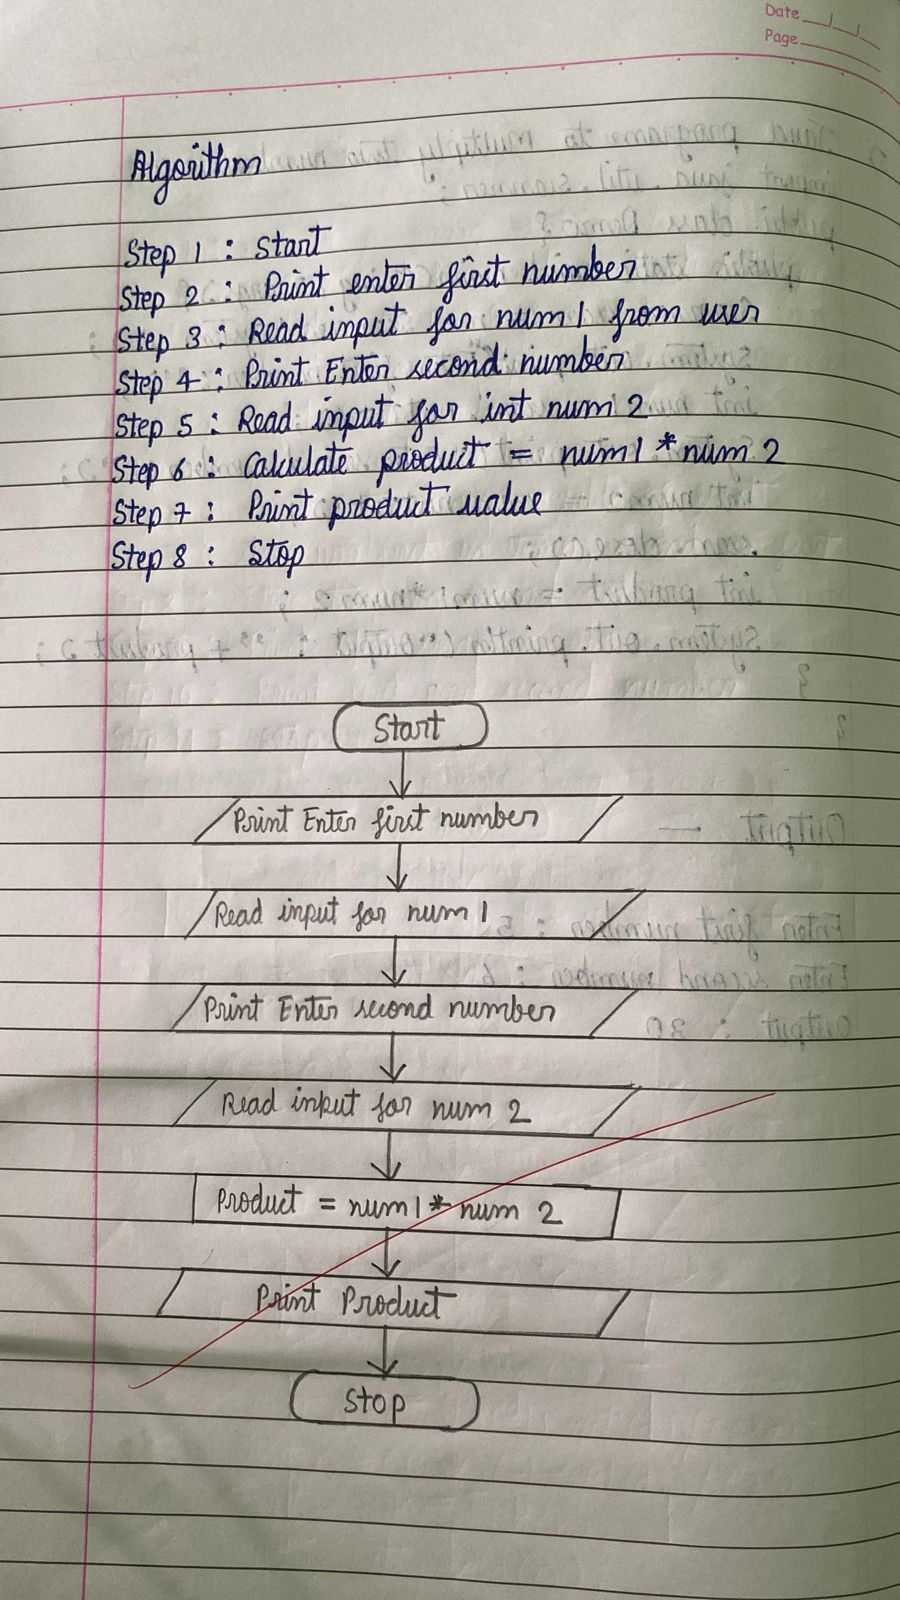 Date
Page
Algorithm
Step 1 : Start
Step 2 : Print enter first number
Step 3 : Read input for num1 from user
Step 4 : Print Enter second number
Step 5 : Read input for int num 2
Step 6 : Calculate product = num1 * num 2
Step 7 : Print product value
Step 8 : Stop
Start
Print Enter first number
Read input for num 1
Print Enter second number
Read input for num 2
Product = num1 * num 2
Print Product
Stop